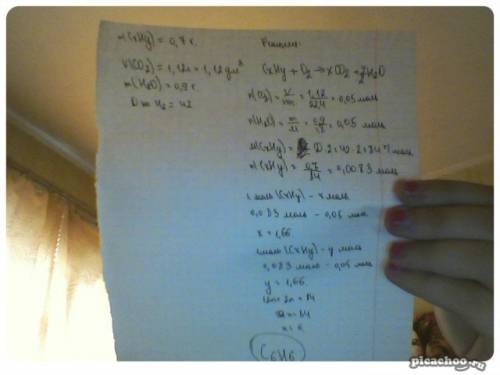 m(CxHy) = 0,7 г.
V(CO2) = 1,12л = 1,12 дм³
m(H2O) = 0,9 г.
D по H2 = 42
Решение:
CxHy + O2 → xCO2 + y/2 H2O
n(CO2) = V/Vm = 1,12/22,4 = 0,05 моль
n(H2O) = m/M = 0,9/18 = 0,05 моль
M(CxHy) = D·2 = 42·2 = 84 г/моль
n(CxHy) = 0,7/84 = 0,0083 моль
1 моль (CxHy) – x моль
0,083 моль – 0,05 моль
x = 1,66
1 моль (CxHy) – y моль
0,083 моль – 0,05 моль
y = 1,66
12n + 2n = 84
n = 6
C6H6
picachoo.ru